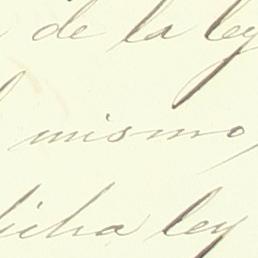 de la ley
mismo,
dicha ley